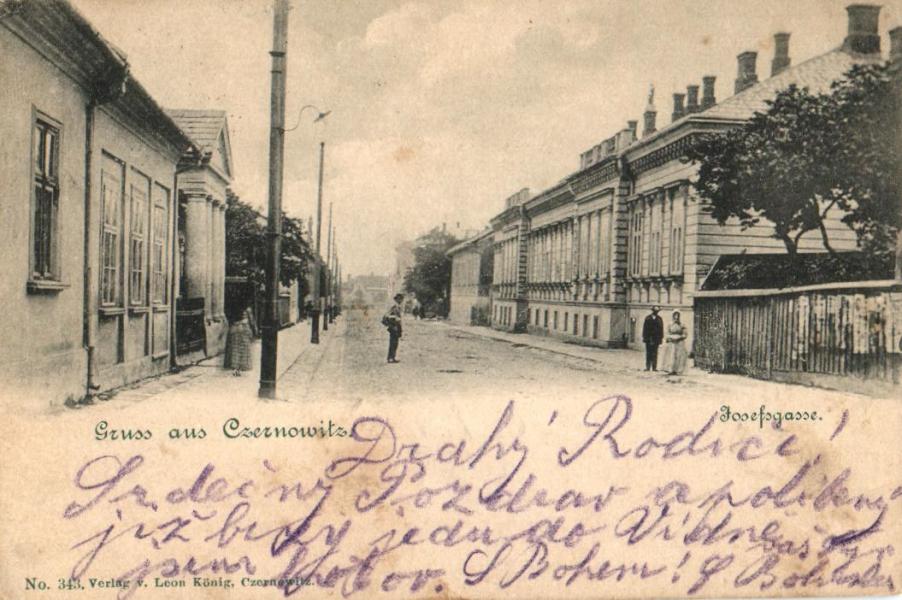 Gruss aus Czernowitz.
Josefsgasse.
Drahý Rodiči!
Srdečný Pozdrav a políbený
již jedu do Vídně
jsem S Bohem!
No. 343, Verlag v. Leon König, Czernowitz.